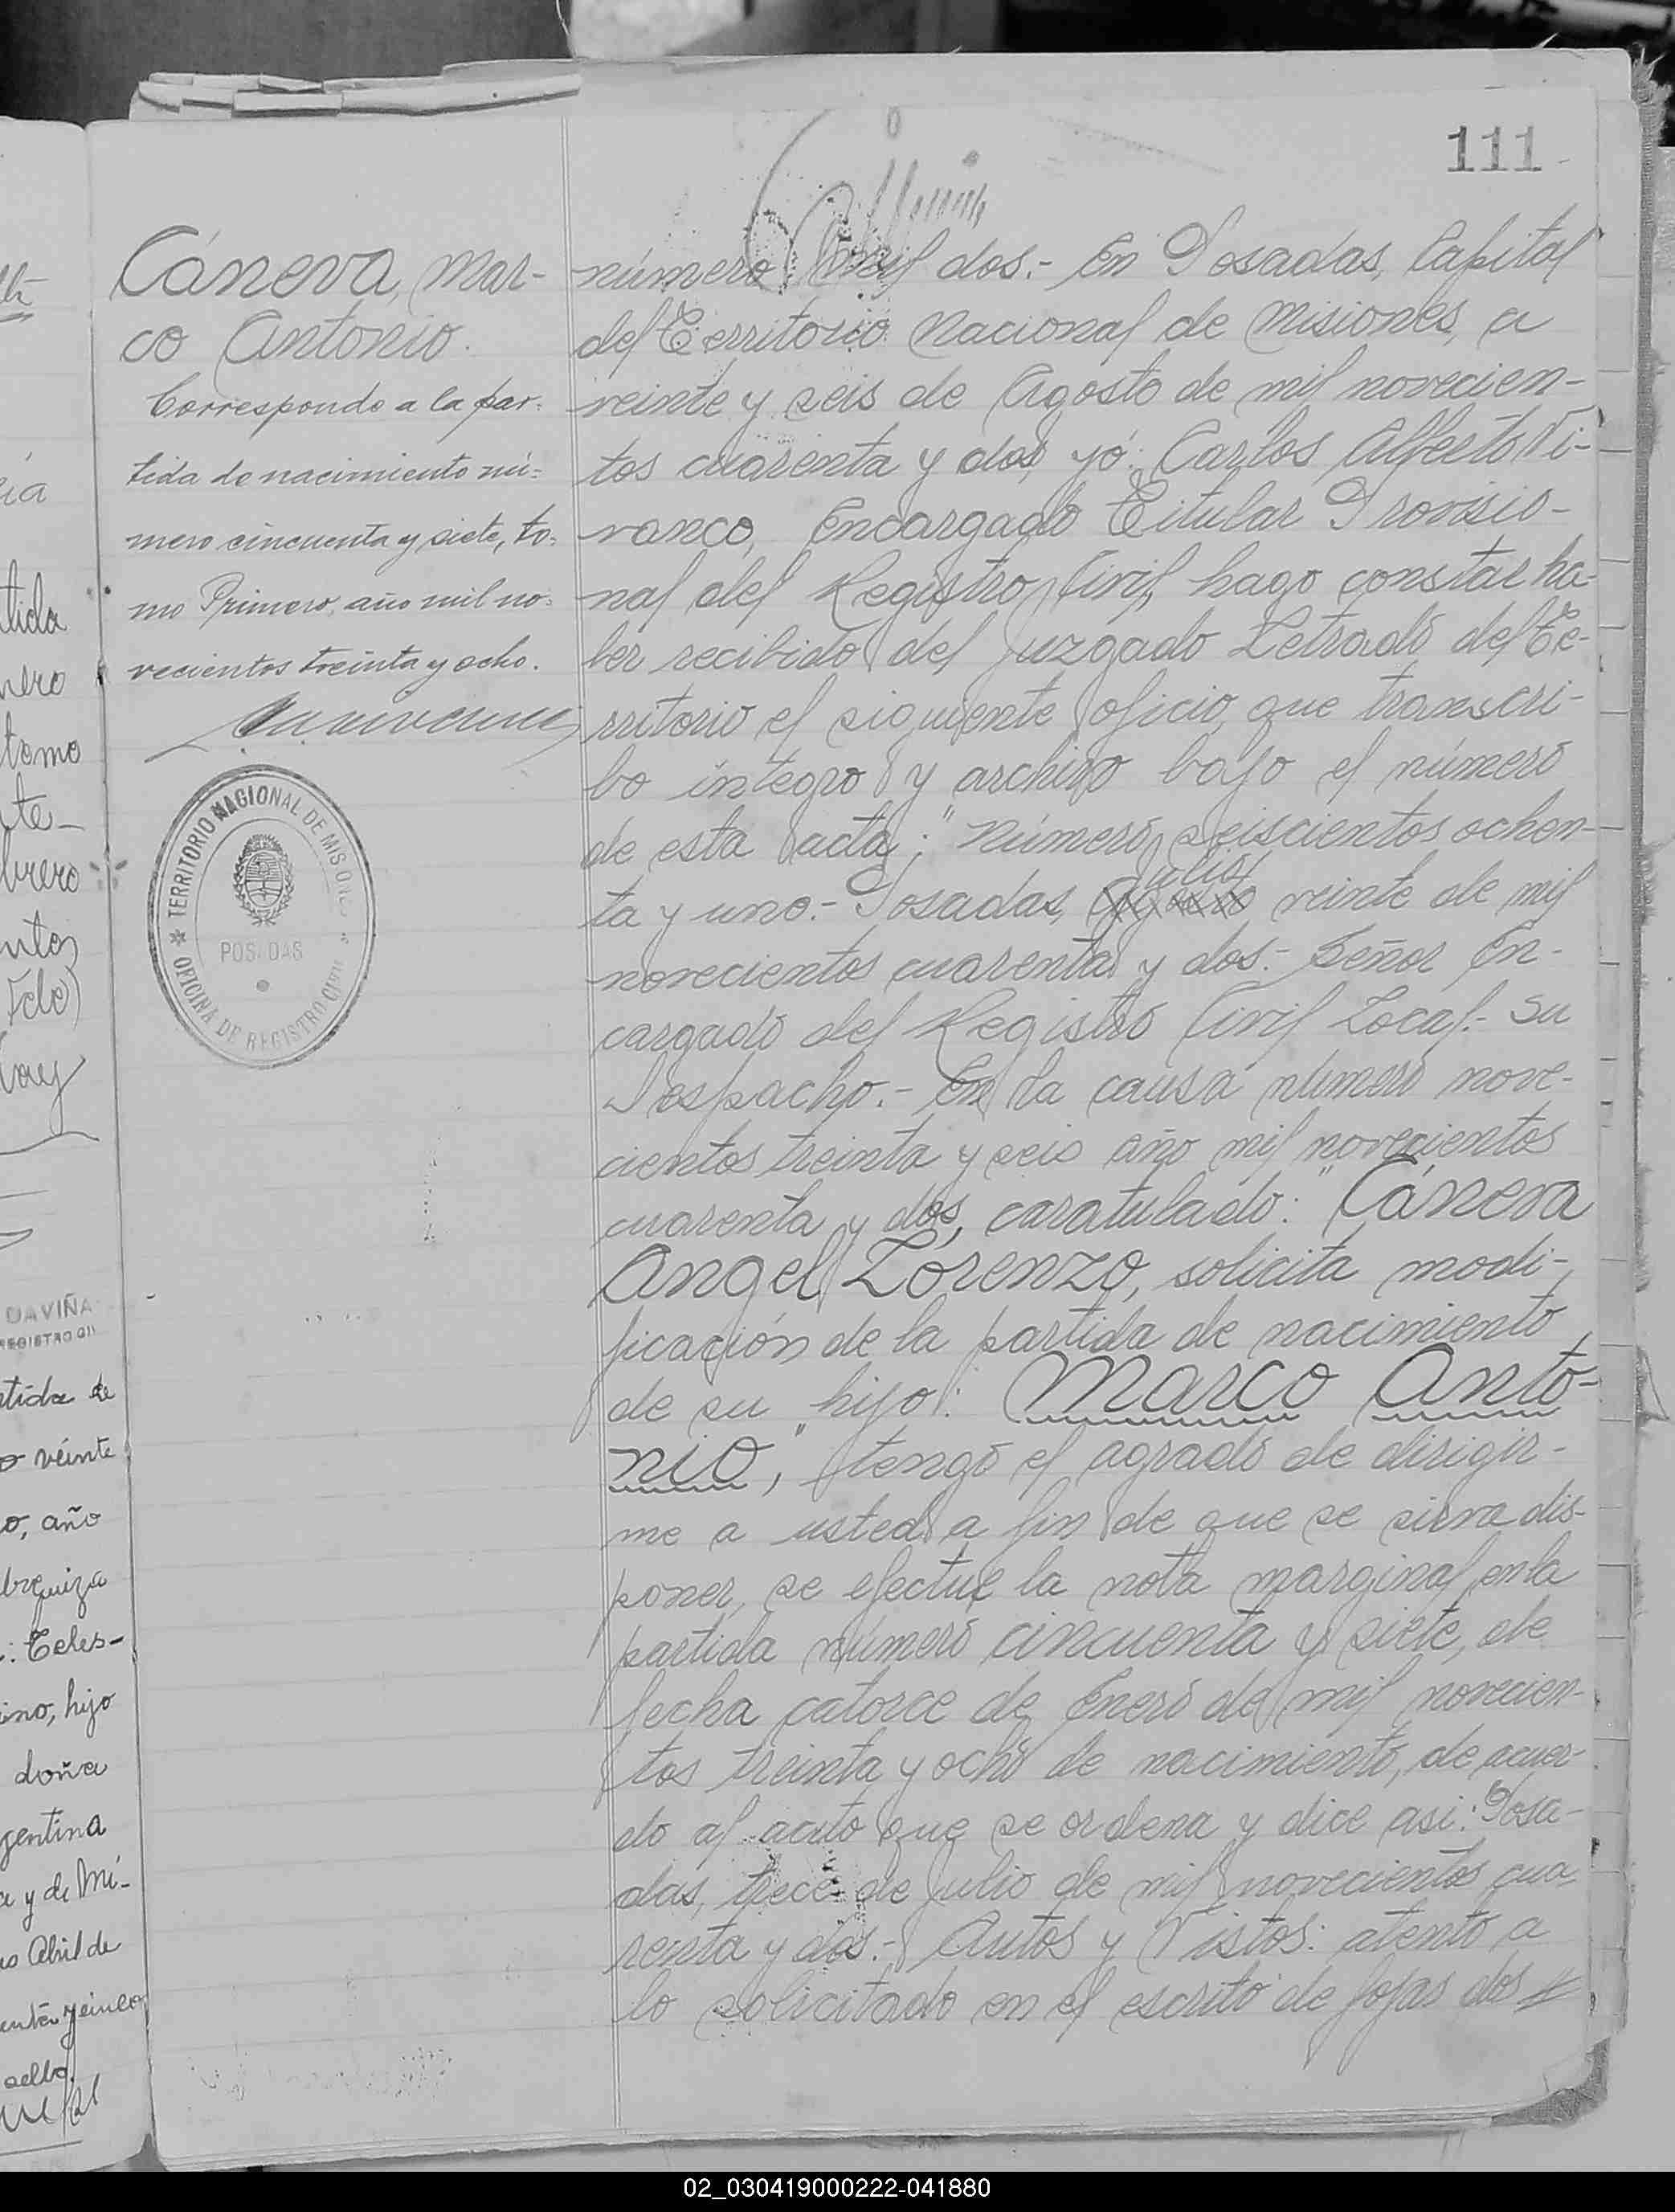 111
Cáneva, Mar-
co Antonio.
Corresponde a la par-
tida de nacimiento nú-
mero cincuenta y siete, to-
mo Primero, año mil no-
vecientos treinta y ocho.
TERRITORIO NACIONAL DE MISIONES
POSADAS
OFICINA DE REGISTRO CIVIL
número mil dos.- En Posadas, Capital
del Territorio Nacional de Misiones, a
veinte y seis de Agosto de mil novecien-
tos cuarenta y dos, yó: Carlos Alberto Vi-
vanco, Encargado Titular Provisio-
nal del Registro Civil, hago constar ha-
ber recibido del Juzgado Letrado del Te-
rritorio el siguiente oficio, que transcri-
bo íntegro y archivo bajo el número
de esta acta: "Número seiscientos ochen-
ta y uno.- Posadas, Julio veinte de mil
novecientos cuarenta y dos.- Señor En-
cargado del Registro Civil Local.- Su
Despacho.- En la causa número nove-
cientos treinta y seis año mil novecientos
cuarenta y dos, caratulado: "Cáneva
Angel Lorenzo, solicita modi-
ficación de la partida de nacimiento
de su hijo: Marco Anto-
nio", tengo el agrado de dirigir-
me a usted a fin de que se sirva dis-
poner, se efectue la nota marginal en la
partida número cincuenta y siete, de
fecha catorce de Enero de mil novecien-
tos treinta y ocho de nacimiento, de acuer-
do al auto que se ordena y dice asi: "Posa-
das, trece de Julio de mil novecientos cua-
renta y dos.- Autos y Vistos: atento a
lo solicitado en el escrito de fojas dos //
tida
mero
tomo
brero
DAVIÑA
REGISTRO CI
tida de
veinte
o, año
: Teles-
ino, hijo
doña
gentina
a y de Mi-
Abril de
y cinco
sello.
02_030419000222-041880